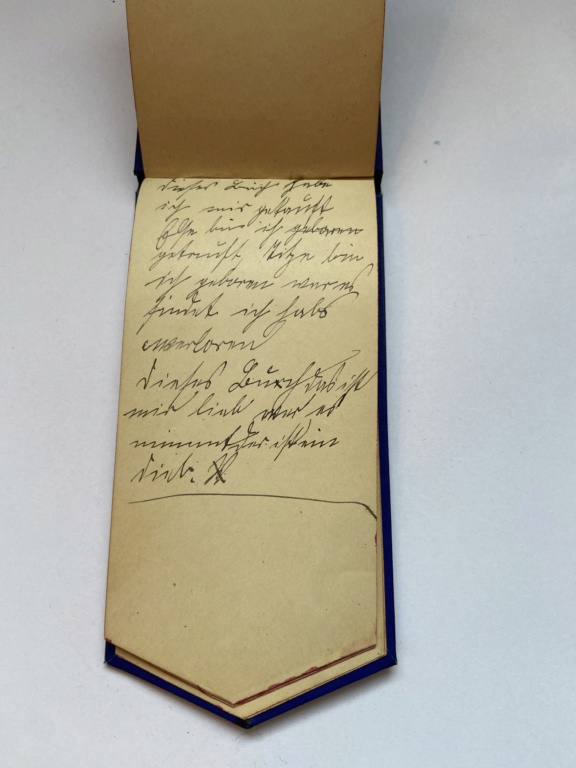 dieses Buch habe
ich mir gekauft
bin ich geboren
getauft, bin
ich geboren wer es
findet ich habs
verloren
dieses Buch das ist
mir lieb wer es
nimmt der ist ein
dieb.